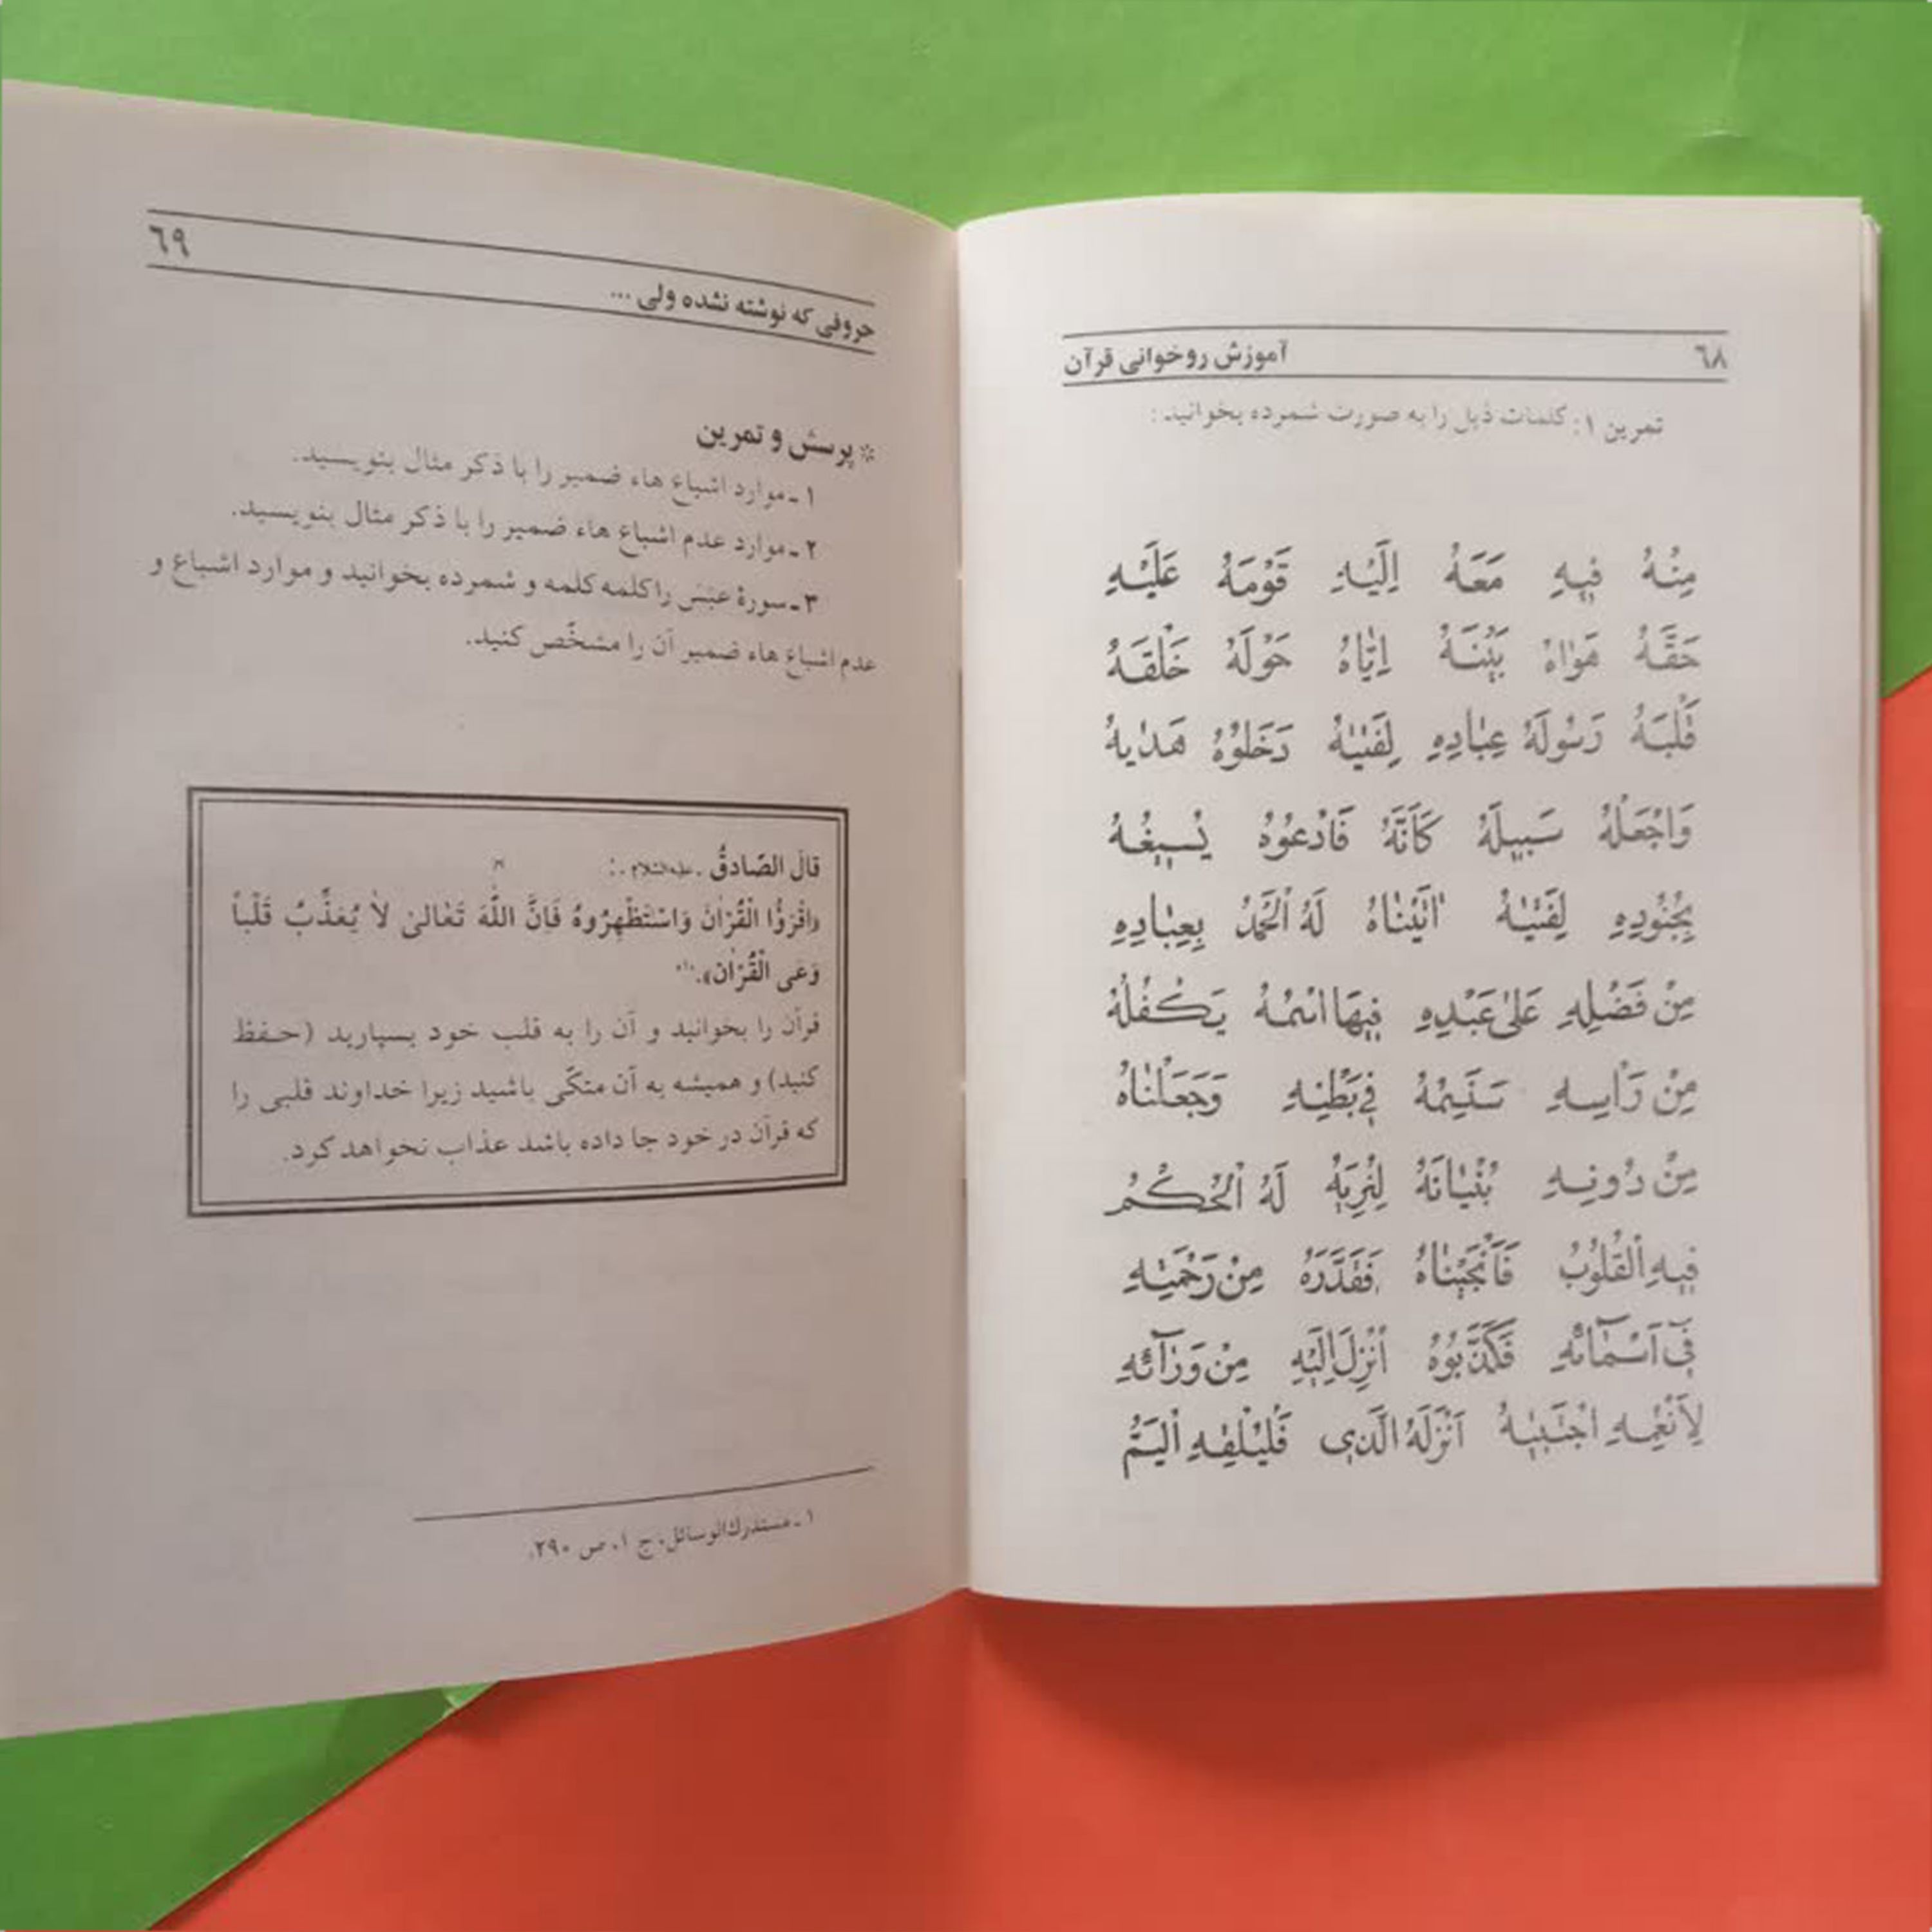 ٦٨ آموزش روخوانی قرآن
تمرین ۱: کلمات ذیل را به صورت شمرده بخوانید:
مِنْهُ فیهِ مَعَهُ اِلَیْهِ قَوْمَهُ عَلَیْهِ
حَقَّهُ هَوٰاهُ بَیْنَهُ اِیّٰاهُ حَوْلَهُ خَلْقَهُ
قَلْبَهُ رَسُولَهُ عِبٰادِهِ لِفَتٰیهُ دَخَلُوْهُ هَدٰیهُ
وَاجْعَلْهُ سَبیلَهُ کَاَنَّهُ فَادْعُوْهُ یُسیغُهُ
بِجُنُودِهِ لِفَتٰیهُ اٰتَیْنٰاهُ لَهُ الْحَمْدُ بِعِبٰادِهِ
مِنْ فَضْلِهِ عَلیٰ عَبْدِهِ فیهَا اسْمُهُ یَکْفُلُهُ
مِنْ رَاْسِهِ سَنَسِمُهُ فی بَطْنِهِ وَجَعَلْنٰاهُ
مِنْ دُونِهِ بُنْیٰانَهُ لِنُرِیَهُ لَهُ الْحُکْمُ
فیهِ الْقُلُوْبُ فَاَنْجَیْنٰاهُ فَقَدَّرَهُ مِنْ رَحْمَتِهِ
فی اَسْمٰآئِهِ فَکَذَّبُوْهُ اُنْزِلَ اِلَیْهِ مِنْ وَرٰآئِهِ
لِاَنْعُمِهِ اجْتَبٰیهُ اَنْزَلَهُ الَّذی فَلْیُلْقِهِ الْیَمُّ
٦٩
حروفی که نوشته نشده ولی ...
* پرسش و تمرین
۱ ـ موارد اشباع هاء ضمیر را با ذکر مثال بنویسید.
۲ ـ موارد عدم اشباع هاء ضمیر را با ذکر مثال بنویسید.
۳ ـ سورهٔ عَبَسَ را کلمه کلمه و شمرده بخوانید و موارد اشباع و
عدم اشباع هاء ضمیر آن را مشخّص کنید.
قالَ الصّادقُ ـ علیه‌السّلام ـ :
«اقْرَؤُا الْقُرْاٰنَ وَاسْتَظْهِرُوهُ فَاِنَّ اللّٰهَ تَعٰالیٰ لاٰ یُعَذِّبُ قَلْباً
وَعَی الْقُرْاٰنَ».«۱»
قرآن را بخوانید و آن را به قلب خود بسپارید (حفظ
کنید) و همیشه به آن متکّی باشید زیرا خداوند قلبی را
که قرآن در خود جا داده باشد عذاب نخواهد کرد.
۱ ـ مستدرك‌الوسائل، ج ۱، ص ۲۹۰.